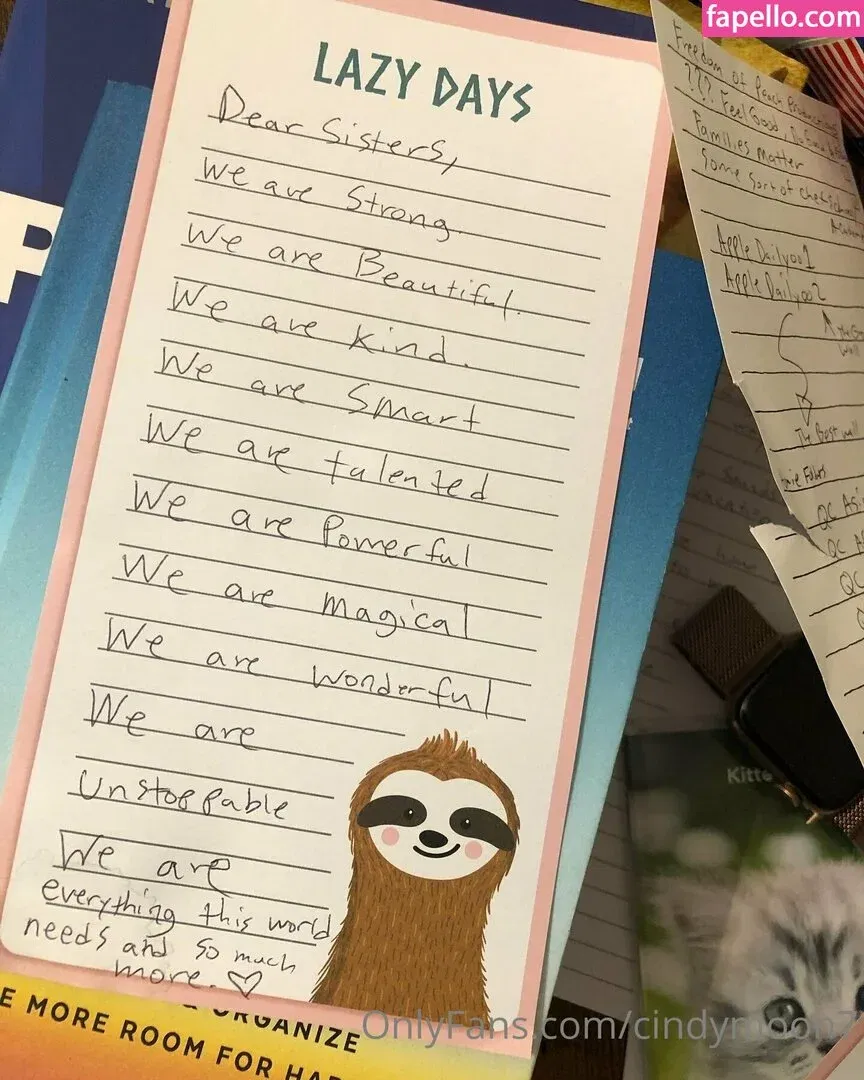 fapello.com
LAZY DAYS
Dear Sisters,
We are Strong.
We are Beautiful.
We are Kind.
We are Smart
We are talented
We are Powerful
We are magical
We are wonderful
We are
Unstoppable
We are
everything this world
needs and so much
more. ♡
Freedom of Peach
??? Feel Good,
Families Matter
Some sort of
Apple Daily001
Apple Daily002
The Best
QC
QC
QC
Kitte
P
ORGANIZE
E MORE ROOM FOR HA
OnlyFans.com/cindymoon7